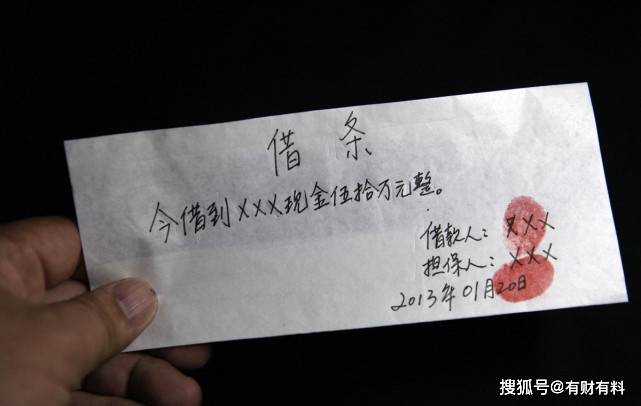 借条
今借到XXX现金伍拾万元整。
借款人：XXX
担保人：XXX
2013年01月20日
搜狐号@有财有料